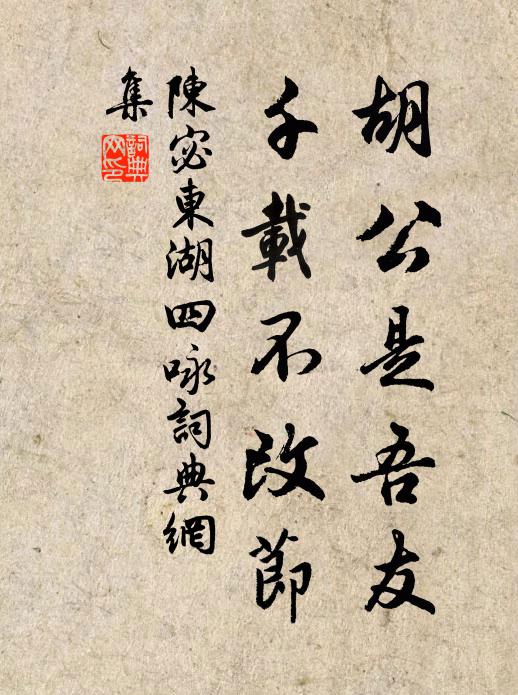 胡公是吾友
千載不改節
陳宓東湖四咏詞典網
集
詞典
网印